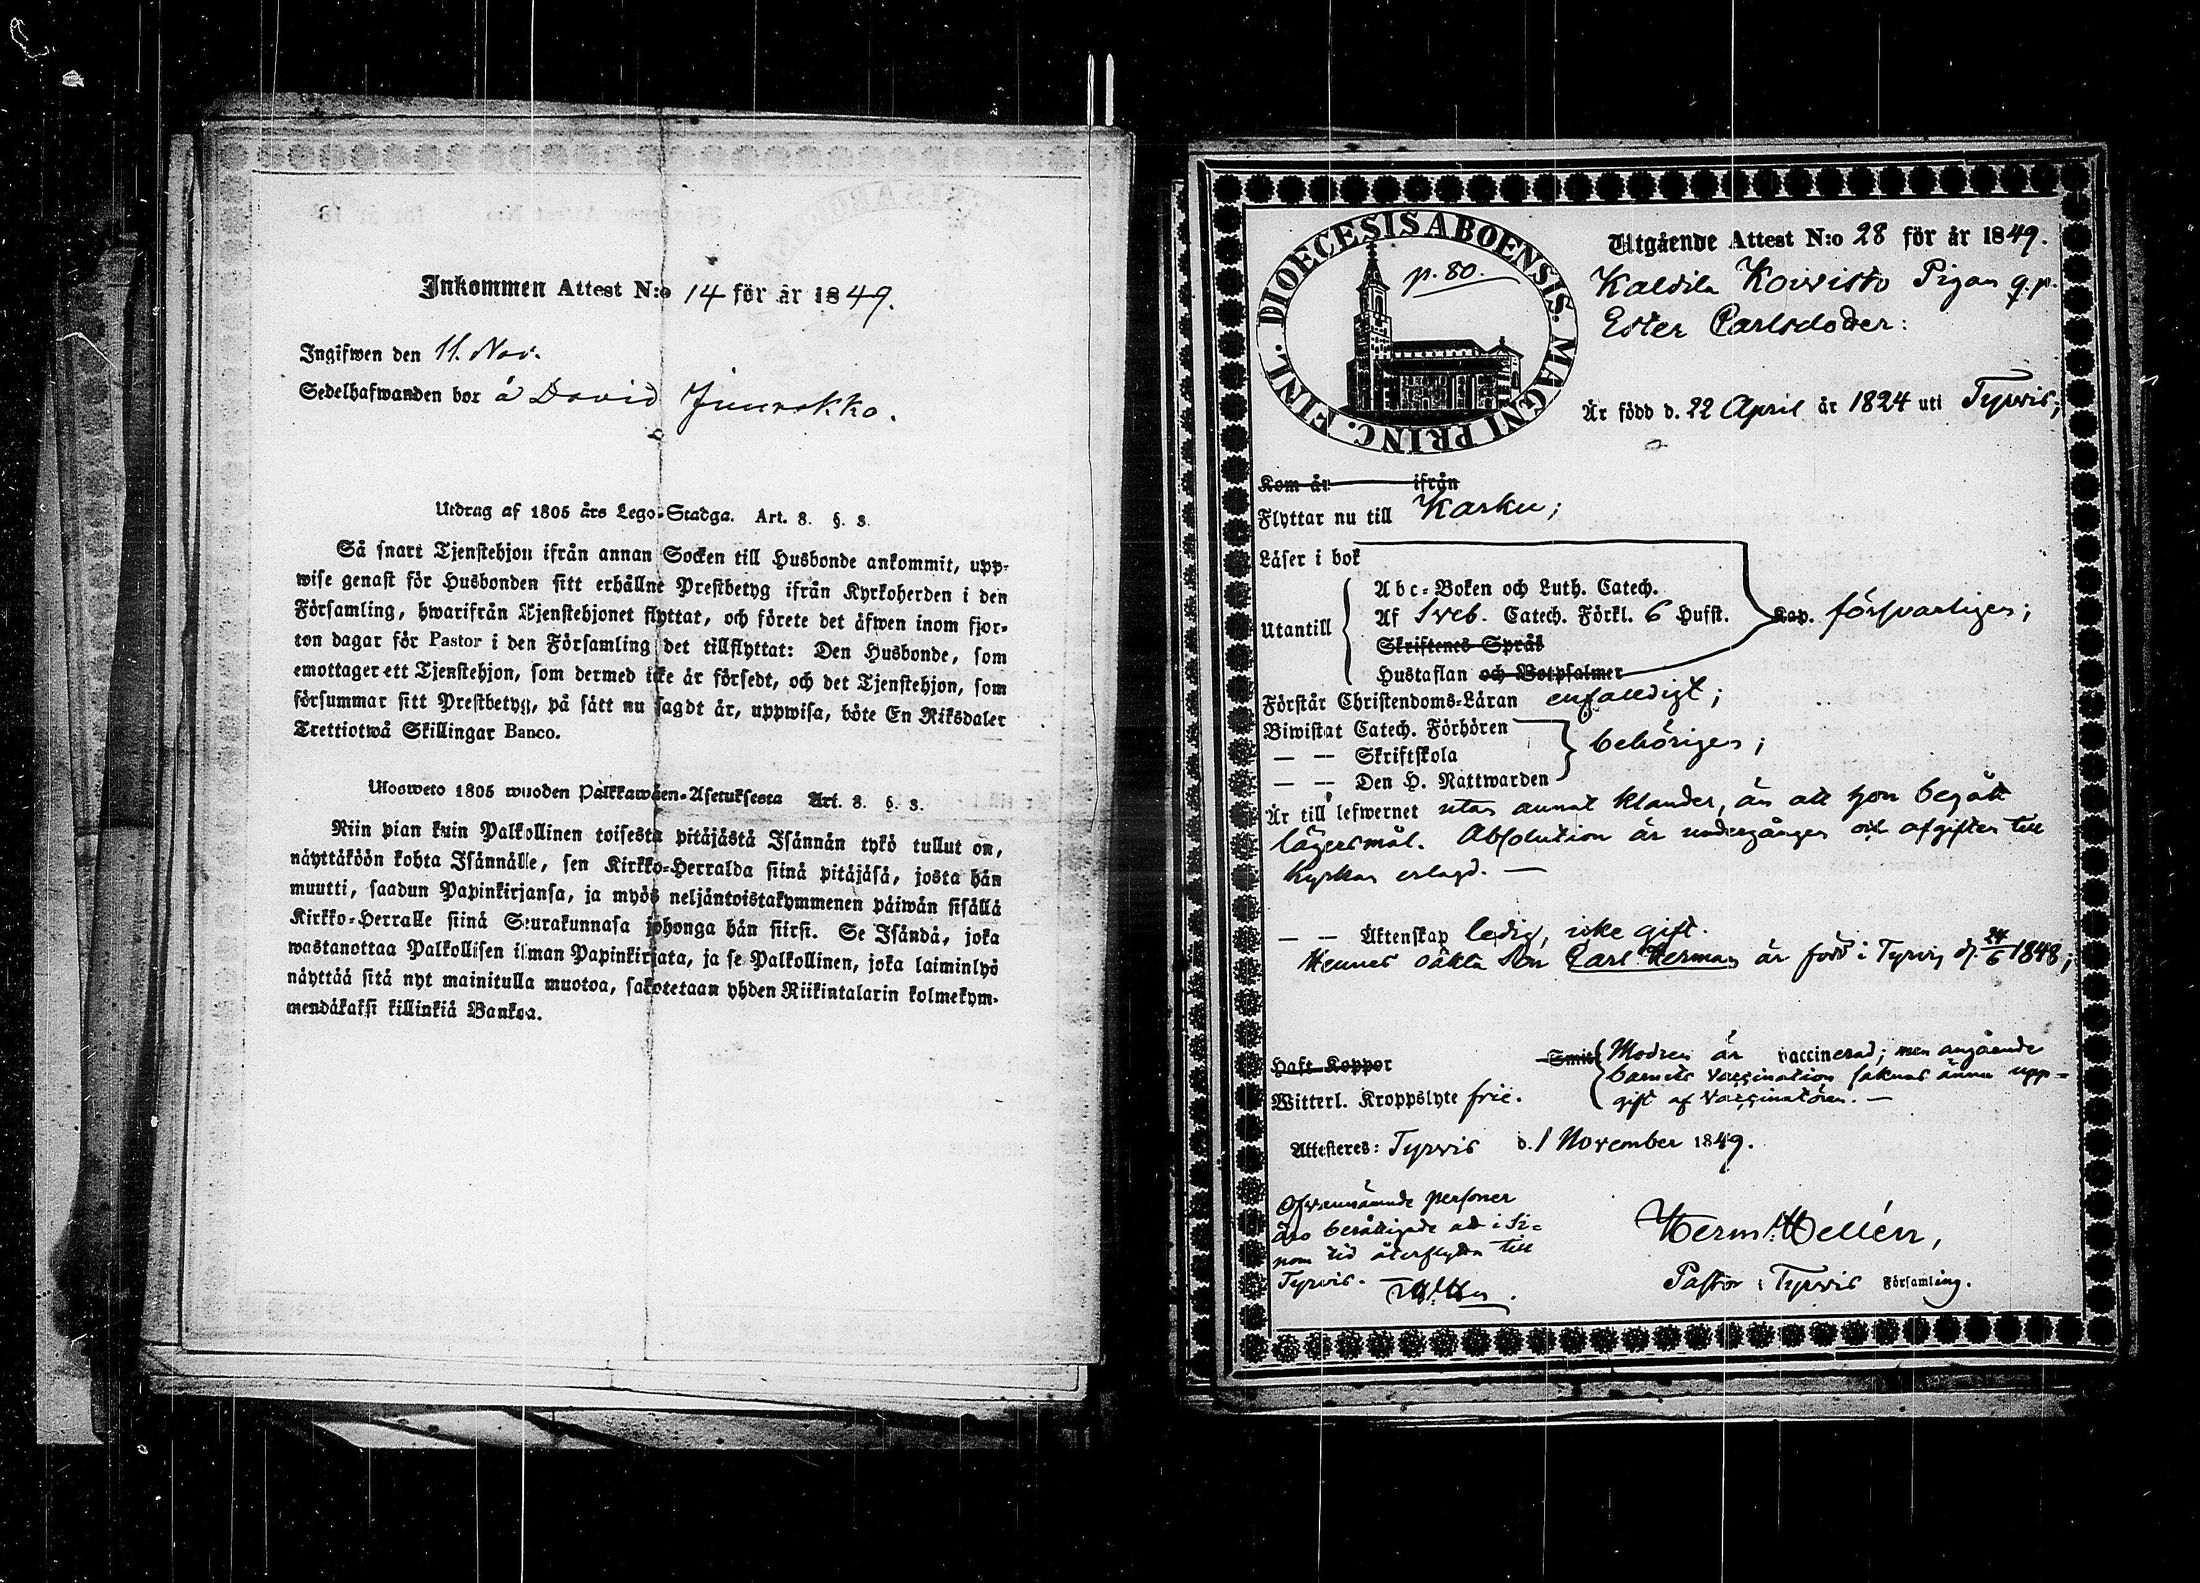 Inkommen Attest N:o 14 för år 1849.
Ingifwen den 11. Nov.
Sedelhafwanden bor å David
Utdrag af 1805 års Lego-Stadga. Art. 8. §. 8.
Så snart Tjenstehjon ifrån annan Socken till Husbonde ankommit, upp-
wise genast för Husbonden sitt erhållne Prestbetyg ifrån Kyrkoherden i den
Församling, hwarifrån Tjenstehjonet flyttat, och förete det äfwen inom fjor-
ton dagar för Pastor i den Församling det tillflyttat: Den Husbonde, som
emottager ett Tjenstehjon, som dermed icke är försedt, och det Tjenstehjon, som
försummar sitt Prestbetyg, på sätt nu sagdt är, uppwisa, böte En Riksdaler
Trettiotwå Skillingar Banco.
Ulosweto 1805 wuoden Palkkawäen-Asetuksesta Art. 8. §. 8.
Niin pian kuin Palkollinen toisesta pitäjästä Isännän tykö tullut on,
näyttäköön kohta Isännälle, sen Kirkko-Herralda siinä pitäjäsä, josta hän
muutti, saadun Papinkirjansa, ja myös neljäntoistakymmenen päiwän sisällä
Kirkko-Herralle siinä Seurakunnasa johonga hän siirsi. Se Isändä, joka
wastanottaa Palkollisen ilman Papinkirjata, ja se Palkollinen, joka laiminlyö
näyttää sitä nyt mainitulla muotoa, sakotetaan yhden Riikintalarin kolmekym-
mendäkaksi killinkiä Bankoa.
DIOECESIS ABOENSIS. MAGNI PRINC. FINL.
p. 80.
Utgående Attest N:o 28 för år 1849.
Kaldila Koivisto Pigan q.p.
Ester Carlsdotter:
Är född d. 22 April år 1824 uti Tyrvis;
Kom år ifrån
Flyttar nu till Karku;
Läser i bok
Utantill
Abc-Boken och Luth. Catech.
Af Sveb. Catech. Förkl. 6 Hufst.
Skriftenes Språk
Hustaflan och Botpsalmer
Kap. försvarligen;
Förstår Christendoms-Läran enfalldigt;
Biwistat Catech. Förhören
— — Skriftskola
— — Den H. Nattwarden
behörigen;
Är till lefwernet utan annat klander, än att hon begått
lägersmål. Absolution är undergången och afgiften till
kyrkan erlagd. —
— — Äktenskap ledig, icke gift.
Hennes oäkta Son Carl Herman är född i Tyrvis d. 24/6 1848;
Haft Koppor
Smit
Modren är vaccinerad; men angående
barnets vaccination saknas ännu upp-
gift af Vaccinatören. —
Witterl. Kroppslyte frie.
Attesteres: Tyrvis d. 1 November 1849.
Ofvannämnde personer
äro berättigade att i si-
nom tid återflytta till
Tyrvis.
Herm. Hellén,
Pastor i Tyrvis Församling.